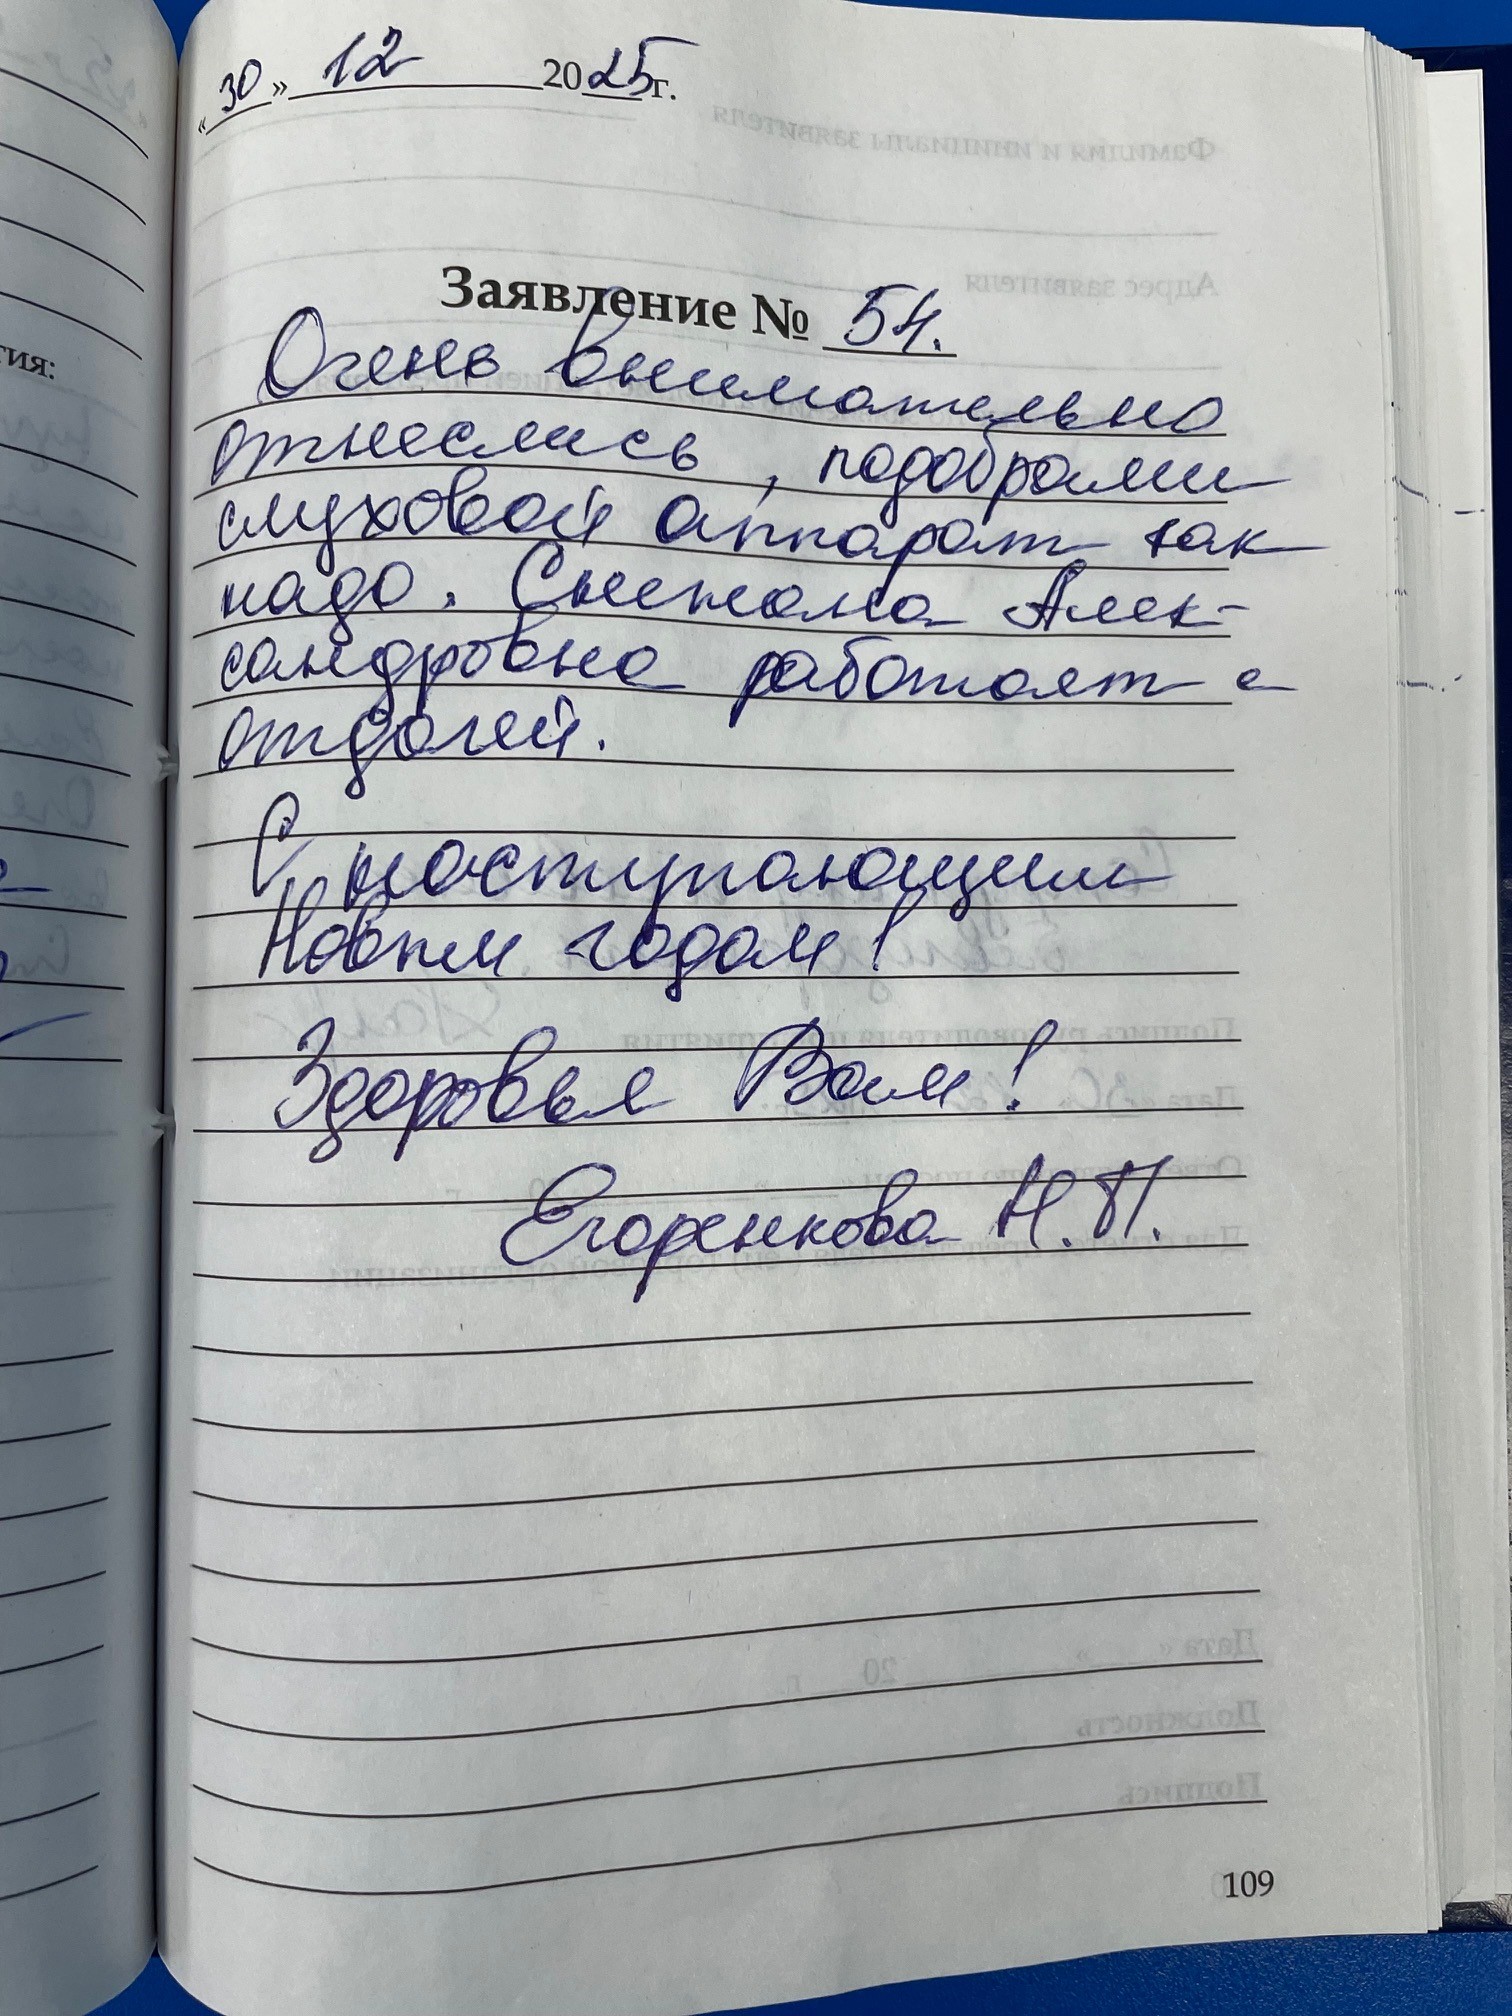 «30» 12 2025г.
Заявление № 54.
Очень внимательно
отнеслись, подобрали
слуховой аппарат как
надо. Снежана Алек-
сандровна работает с
отдачей.
С наступающим
Новым годом!
Здоровья Вам!
Егоренкова Н.П.
109
тия: